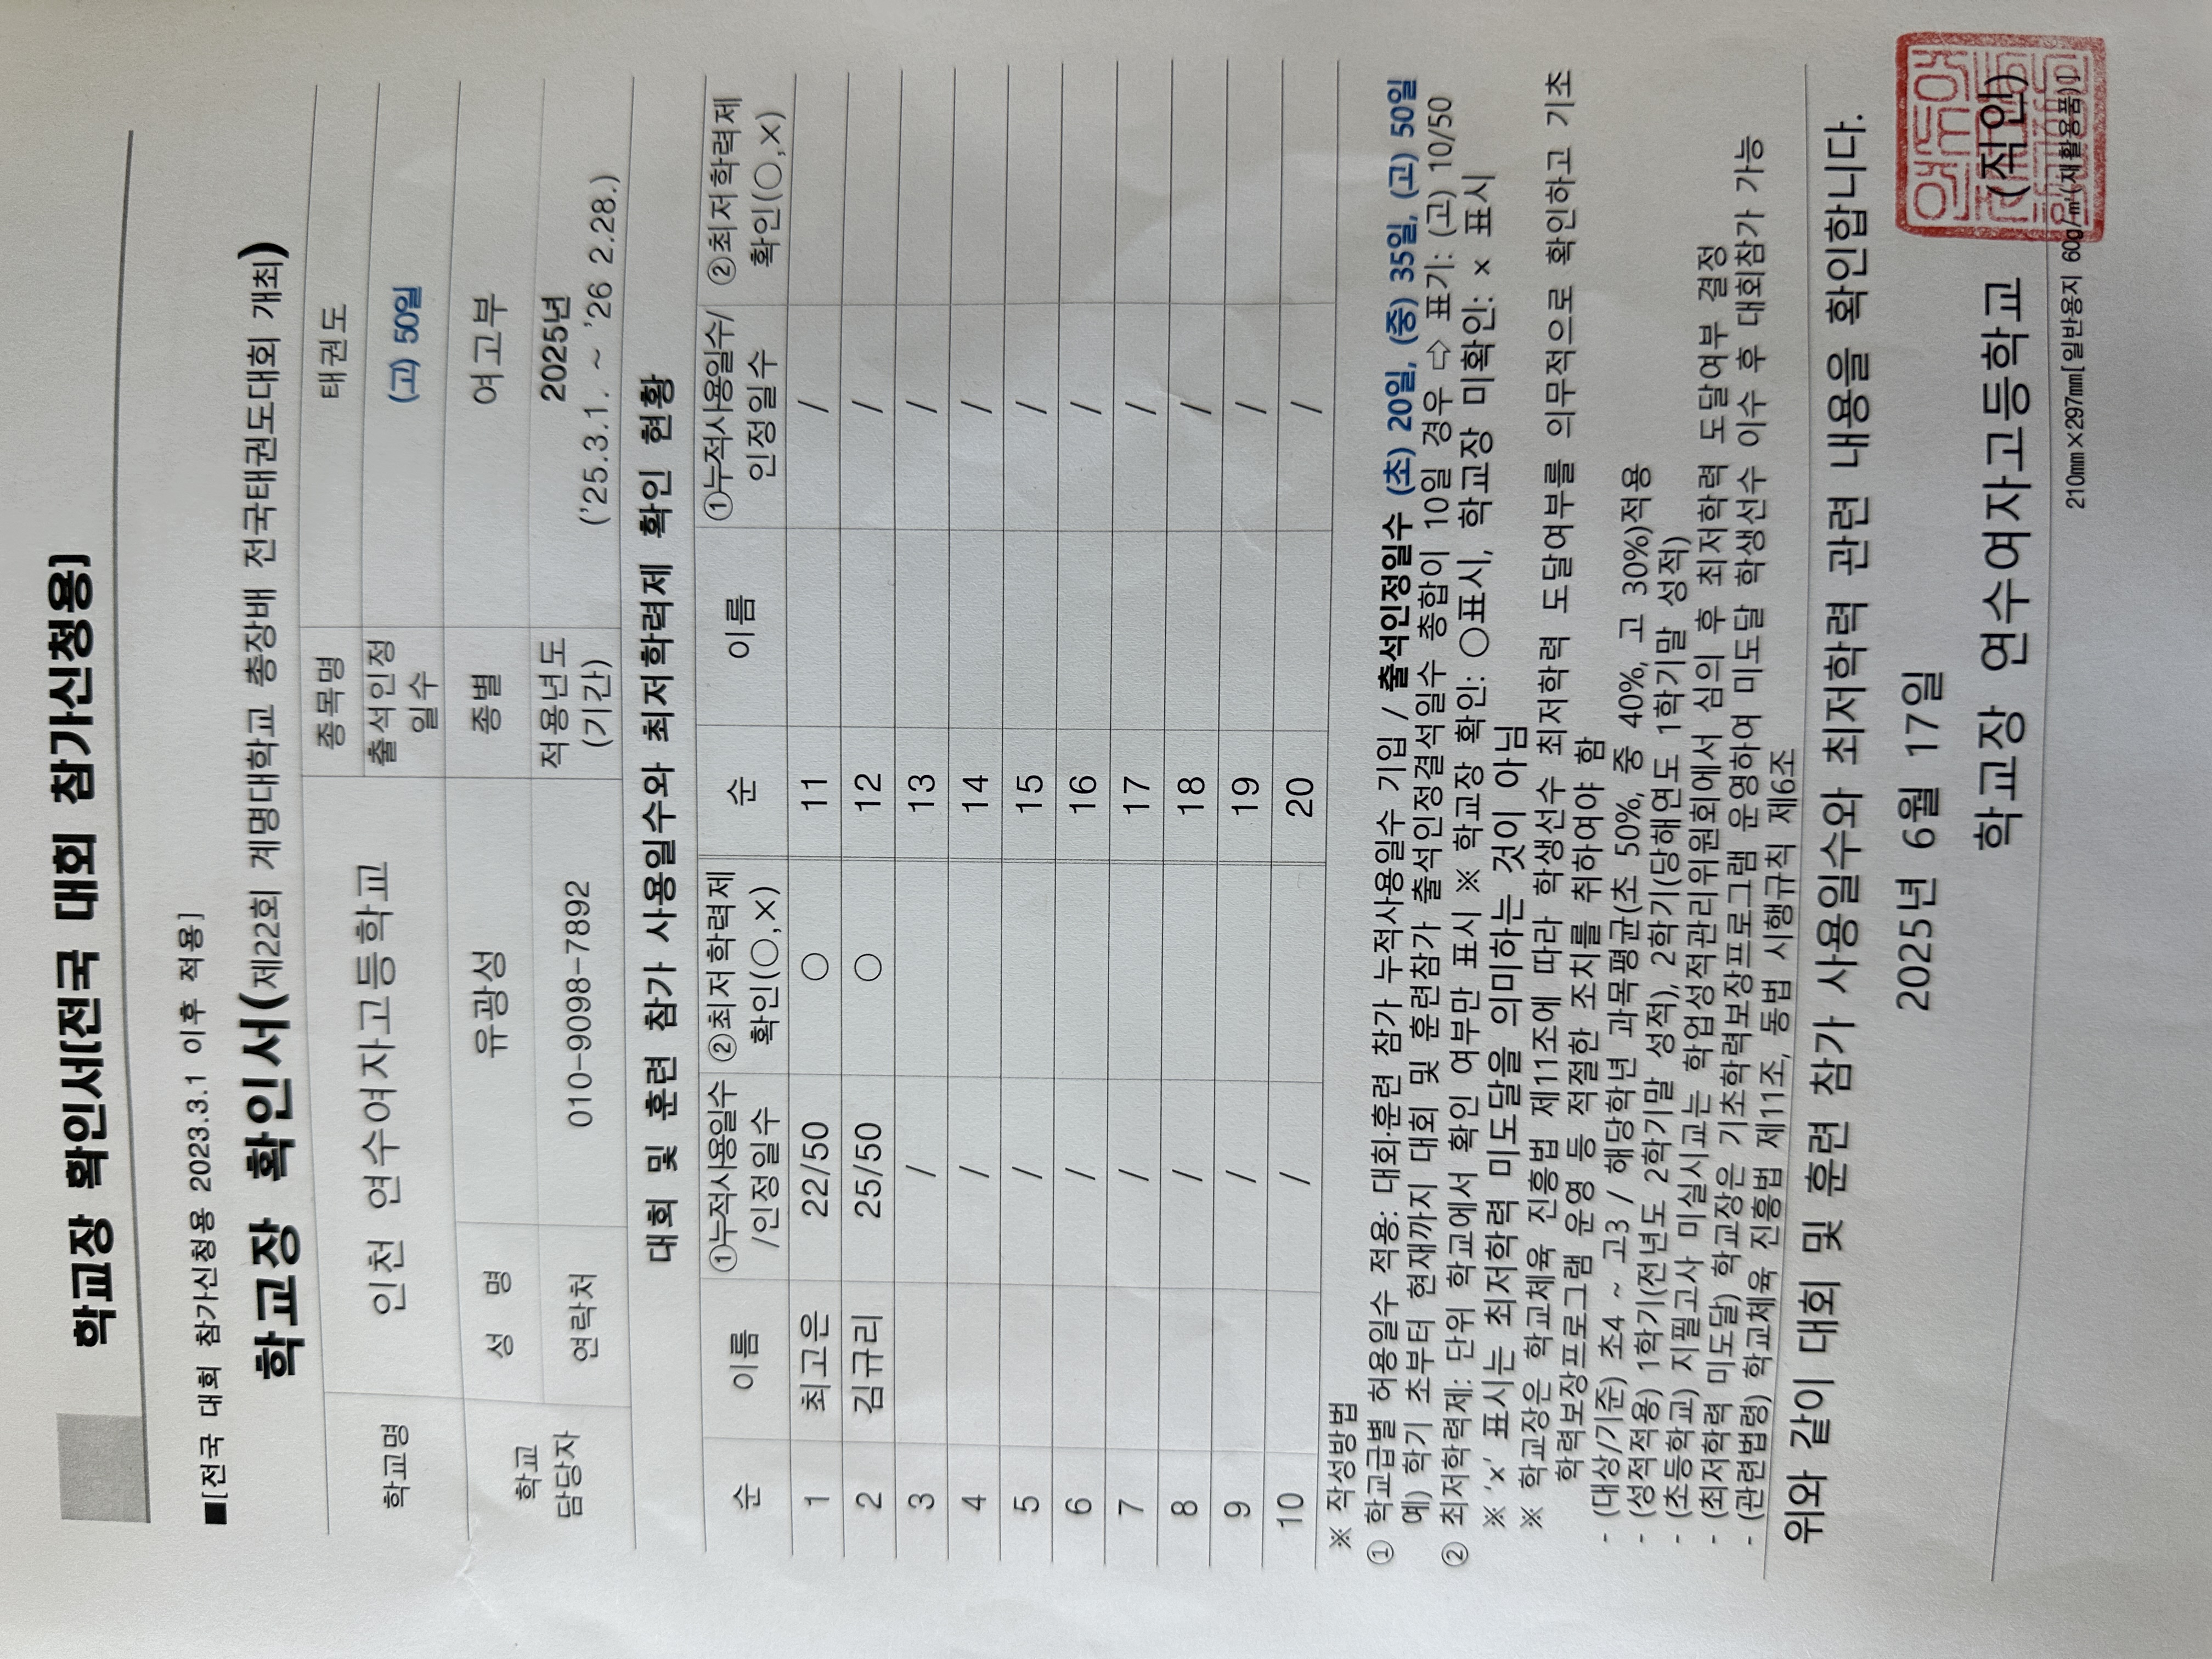 학교장 확인서[전국 대회 참가신청용]
■[전국 대회 참가신청용 2023.3.1 이후 적용]
학교장 확인서(제22회 계명대학교 총장배 전국태권도대회 개최)
학교명 인천 연수여자고등학교 종목명 태권도
출석인정일수 (고) 50일
학교 담당자 성 명 유광성 종별 여고부
연락처 010-9098-7892 적용년도(기간) 2025년 ('25.3.1. ~ '26 2.28.)
대회 및 훈련 참가 사용일수와 최저학력제 확인 현황
순 이름 ①누적사용일수/인정일수 ②최저학력제 확인(○,×) 순 이름 ①누적사용일수/인정일수 ②최저학력제 확인(○,×)
1 최고은 22/50 ○ 11 /
2 김규리 25/50 ○ 12 /
3 / 13 /
4 / 14 /
5 / 15 /
6 / 16 /
7 / 17 /
8 / 18 /
9 / 19 /
10 / 20 /
※ 작성방법
① 학교급별 허용일수 적용: 대회·훈련 참가 누적사용일수 기입 / 출석인정일수 (초) 20일, (중) 35일, (고) 50일
예) 학기 초부터 현재까지 대회 및 훈련참가 출석인정결석일수 총합이 10일 경우 ⇨ 표기: (고) 10/50
② 최저학력제: 단위 학교에서 확인 여부만 표시 ※ 학교장 확인: ○표시, 학교장 미확인: × 표시
※ ‘x’ 표시는 최저학력 미도달을 의미하는 것이 아님
※ 학교장은 학교체육 진흥법 제11조에 따라 학생선수 최저학력 도달여부를 의무적으로 확인하고 기초
학력보장프로그램 운영 등 적절한 조치를 취하여야 함
- (대상/기준) 초4 ~ 고3 / 해당학년 과목평균(초 50%, 중 40%, 고 30%)적용
- (성적적용) 1학기(전년도 2학기말 성적), 2학기(당해연도 1학기말 성적)
- (초등학교) 지필고사 미실시교는 학업성적관리위원회에서 심의 후 최저학력 도달여부 결정
- (최저학력 미도달) 학교장은 기초학력보장프로그램 운영하여 미도달 학생선수 이수 후 대회참가 가능
- (관련법령) 학교체육 진흥법 제11조, 동법 시행규칙 제6조
위와 같이 대회 및 훈련 참가 사용일수와 최저학력 관련 내용을 확인합니다.
2025년 6월 17일
학교장 연수여자고등학교 (직인)
210㎜×297㎜[일반용지 60g/㎡(재활용품)]